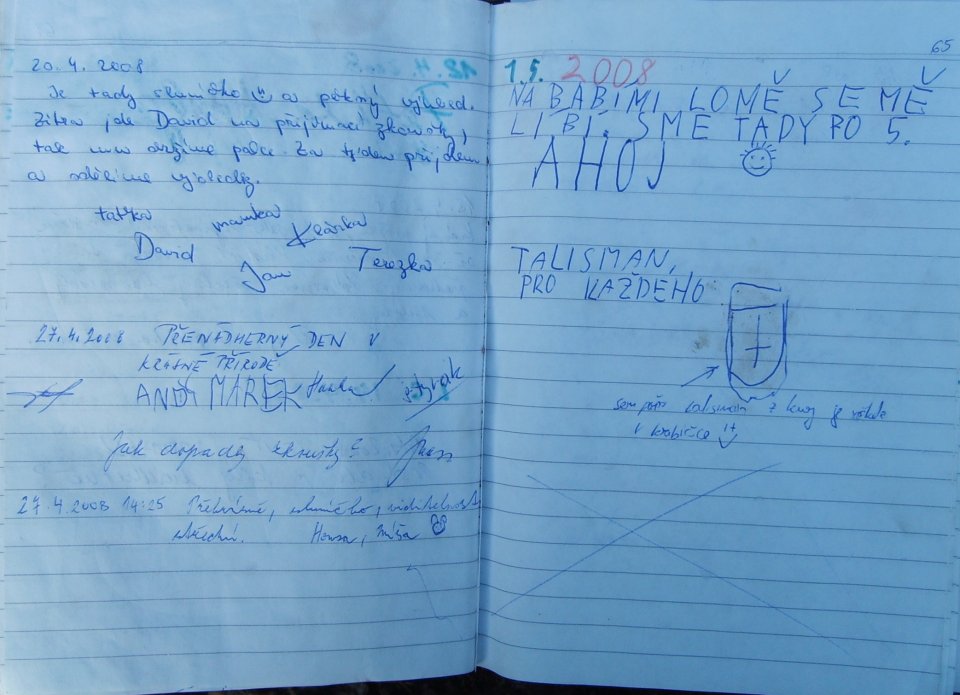 20.4.2008
Je tady sluníčko a pěkný výhled.
Zítra jde David na přijímací zkoušky,
tak mu držíme palce. Za týden přijdem
a sdělíme výsledky.
taťka mamka Klárka
David Jan Terezka
27.4.2008 PŘENÁDHERNÝ DEN V
KRÁSNÉ PŘÍRODĚ
ANDY MAREK Hanka
Jak dopadly zkoušky?
27.4.2008 14:25 sluníčko, viditelnost
střední. Honza, Míša
65
1.5. 2008
NA BABIMI LOMĚ SE MĚ
LÍBÍ. SME TADY PO 5.
AHOJ
TALISMAN,
PRO KAŽDÉHO
talisman z je
v krabičce